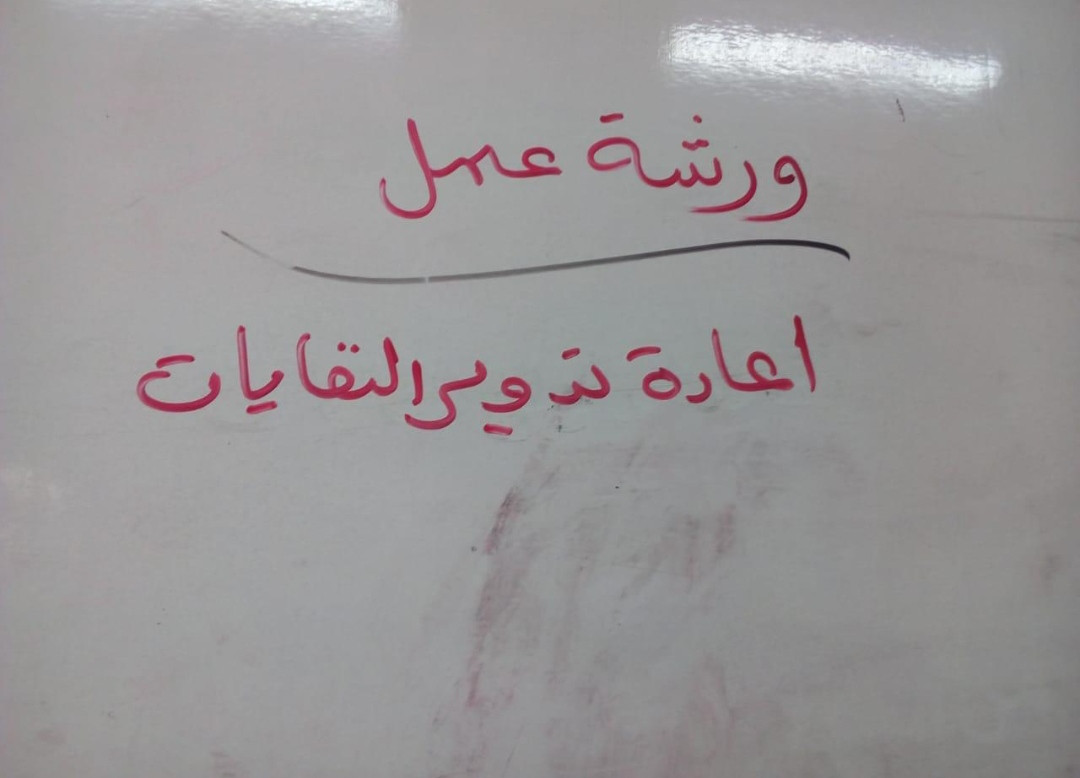 ورشة عمل
اعادة تدوير النفايات